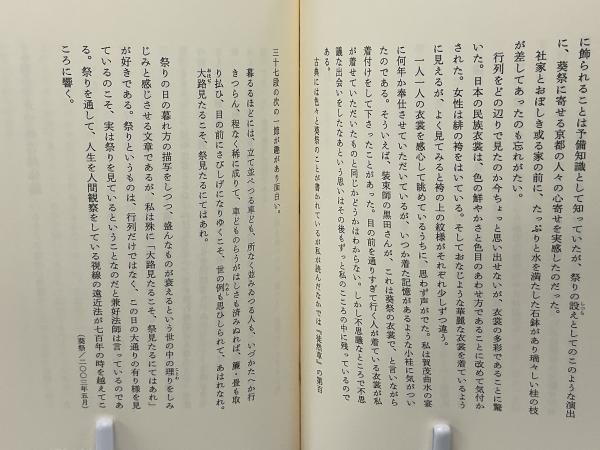 に飾られることは予備知識として知っていたが、祭りの設えとしてのこのような演出
に、葵祭に寄せる京都の人々の心寄せを実感したのだった。
社家とおぼしき或る家の前に、たっぷりと水を満たした石鉢があり瑞々しい桂の枝
が差してあったのも忘れがたい。
行列をどの辺りで見たのか今ちょっと思い出せないが、衣裳の多彩であることに驚
いた。日本の民族衣裳は、色の鮮やかさと色目のあわせ方であることに改めて気付か
された。女性は緋の袴をはいている。そしておなじような華麗な衣裳を着ているよう
に見えるが、よく見てみると袴の上の紋様がそれぞれ少しずつ違う。
一人一人の衣裳を感心して眺めているうちに、思わず声がでた。私は賀茂曲水の宴
に何年か奉仕させていただいているが、いつか着た記憶があるような小袿に気がつい
たのである。そういえば、装束師の黒田さんが、これは葵祭の衣裳で、と言いながら
着付けをして下さったことがあった。目の前を通りすぎて行く人が着ている衣裳が私
が着せていただいたものと同じかどうかはわからない。しかし不思議なところで不思
議な出会いをしたなあという思いはその後もずっと私のこころの中に残っているので
ある。
古典には色々と葵祭のことが書かれているが私が読んだなかでは『徒然草』の第百
三十七段の次の一節が趣があり面白い。
暮るるほどには、立て並べつる車ども、所なく並みゐつる人も、いづかたへか行
きつらん、程なく稀に成りて、車どものらうがはしさも済みぬれば、簾・畳も取
り払ひ、目の前にさびしげになりゆくこそ、世の例も思ひしられて、あはれなれ。
大路見たるこそ、祭見たるにてはあれ。
祭りの日の暮れ方の描写をしつつ、盛んなものが衰えるという世の中の理りをしみ
じみと感じさせる文章であるが、私は殊に「大路見たるこそ、祭見たるにてはあれ」
が好きである。祭りというものは、行列だけではなく、この日の大通りの有り様を見
ているのこそ、実は祭りを見ているということなのだと兼好法師は言っているのであ
る。祭りを通して、人生を人間観察をしている視線の遠近法が七百年の時を越えてこ
ころに響く。
（葵祭／二〇〇三年五月）